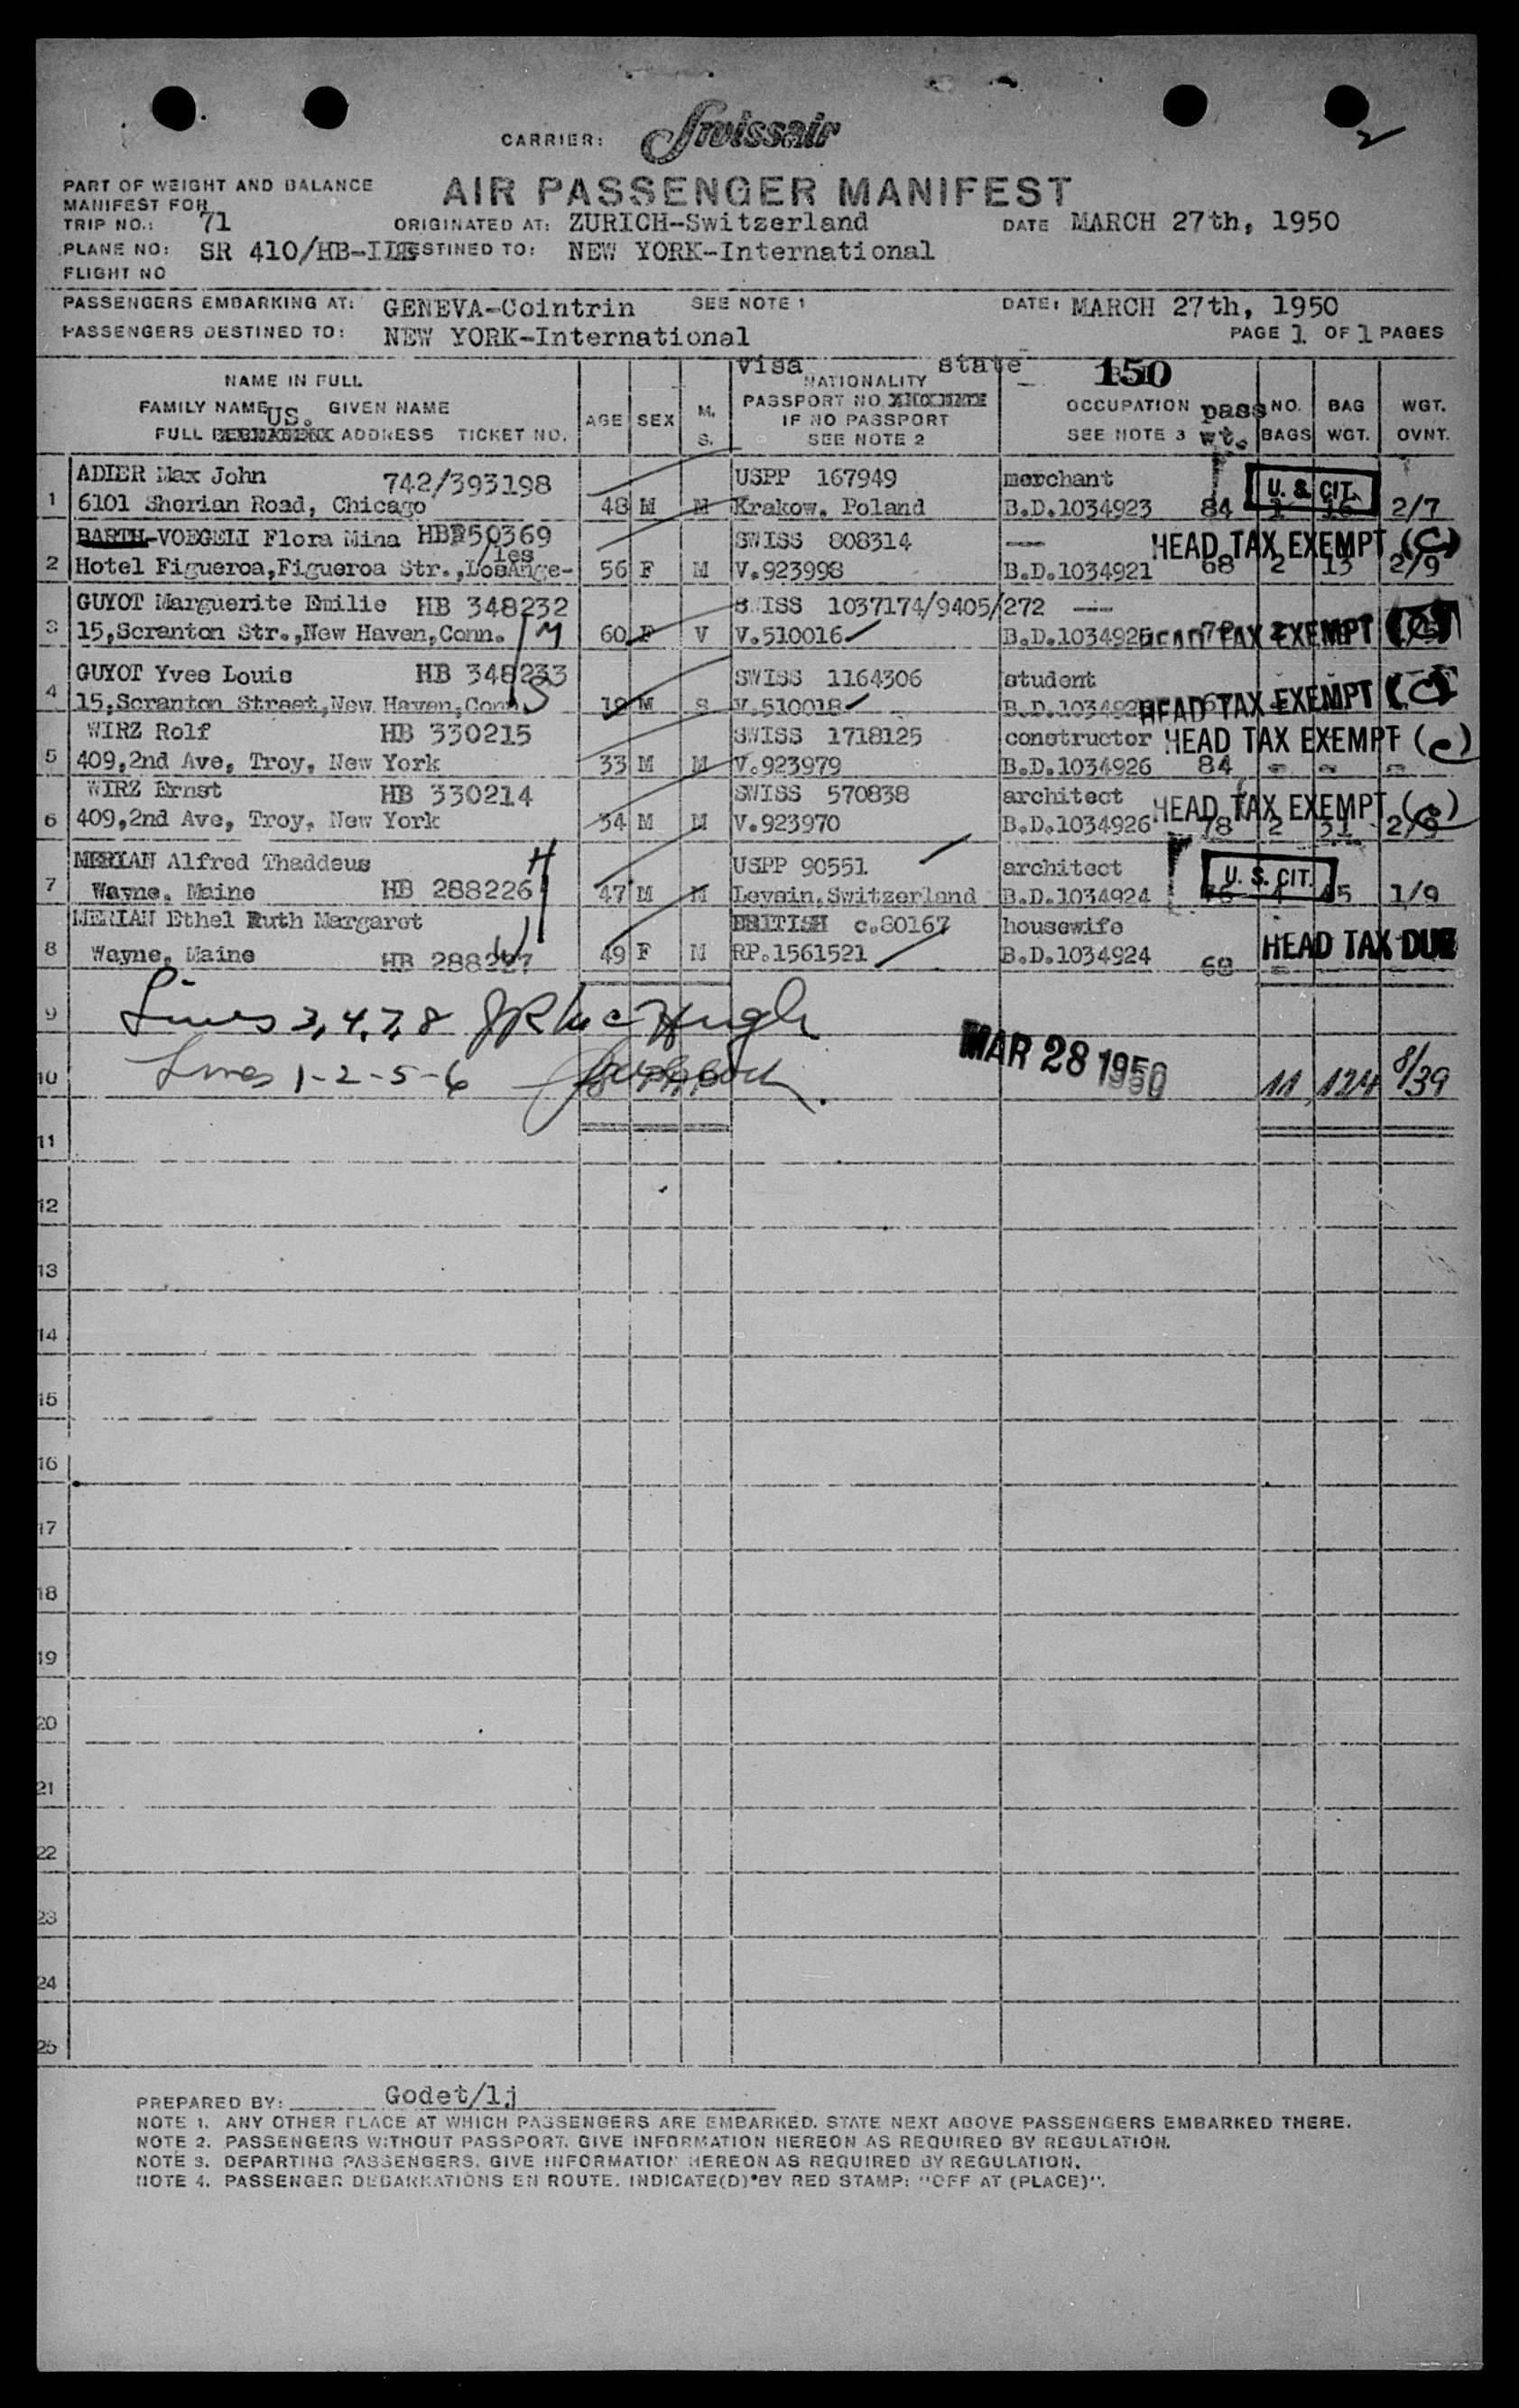 2
CARRIER: Swissair
PART OF WEIGHT AND BALANCE
MANIFEST FOR
AIR PASSENGER MANIFEST
TRIP NO.: 71 ORIGINATED AT: ZURICH-Switzerland DATE MARCH 27th, 1950
PLANE NO: SR 410/HB- DESTINED TO: NEW YORK-International
FLIGHT NO
PASSENGERS EMBARKING AT: GENEVA-Cointrin SEE NOTE 1 DATE: MARCH 27th, 1950
PASSENGERS DESTINED TO: NEW YORK-International PAGE 1 OF 1 PAGES
visa state 150
NAME IN FULL NATIONALITY
FAMILY NAME US. GIVEN NAME AGE SEX M. PASSPORT NO. OCCUPATION pass NO. BAG WGT.
IF NO PASSPORT
FULL ADDRESS TICKET NO. S. SEE NOTE 2 SEE NOTE 3 wt. BAGS WGT. OVNT.
ADIER Max John 742/393198 USPP 167949 merchant U. S. CIT.
1 6101 Sherian Road, Chicago 48 M M Krakow, Poland B.D.1034923 84 1 16 2/7
BARTH-VOEGELI Flora Mina HB 50369 SWISS 808314 --- HEAD TAX EXEMPT (C)
les
2 Hotel Figueroa,Figueroa Str.,LosAnge- 56 F M V.923998 B.D.1034921 68 2 13 2/9
GUYOT Marguerite Emilie HB 348232 SWISS 1037174/9405/272 ---
3 15,Scranton Str.,New Haven,Conn. M 60 F V V.510016 B.D.1034926 HEAD TAX EXEMPT (C)
GUYOT Yves Louis HB 348233 SWISS 1164306 student
4 15,Scranton Street,New Haven,Conn. S 19 M S V.510018 HEAD TAX EXEMPT (C)
WIRZ Rolf HB 330215 SWISS 1718125 constructor HEAD TAX EXEMPT (C)
5 409,2nd Ave, Troy, New York 33 M M V.923979 B.D.1034926 84 - - -
WIRZ Ernst HB 330214 SWISS 570838 architect HEAD TAX EXEMPT (C)
6 409,2nd Ave, Troy, New York 34 M M V.923970 B.D.1034926 78 2 31 2/9
MERIAN Alfred Thaddeus H USPP 90551 architect U. S. CIT.
7 Wayne, Maine HB 288226 47 M M Levain,Switzerland B.D.1034924 1/9
MERIAN Ethel Ruth Margaret W BRITISH c.80167 housewife
8 Wayne, Maine HB 288227 49 F M RP.1561521 B.D.1034924 68 HEAD TAX DUE
9 Lines 3,4,7,8 JR McHugh
10 Lines 1-2-5-6 MAR 28 1950 11 124 8/39
11
12
13
14
15
16
17
18
19
20
21
22
23
24
25
PREPARED BY: Godet/lj
NOTE 1. ANY OTHER PLACE AT WHICH PASSENGERS ARE EMBARKED. STATE NEXT ABOVE PASSENGERS EMBARKED THERE.
NOTE 2. PASSENGERS WITHOUT PASSPORT. GIVE INFORMATION HEREON AS REQUIRED BY REGULATION.
NOTE 3. DEPARTING PASSENGERS. GIVE INFORMATION HEREON AS REQUIRED BY REGULATION.
NOTE 4. PASSENGER DEBARKATIONS EN ROUTE. INDICATE(D) BY RED STAMP: "OFF AT (PLACE)".